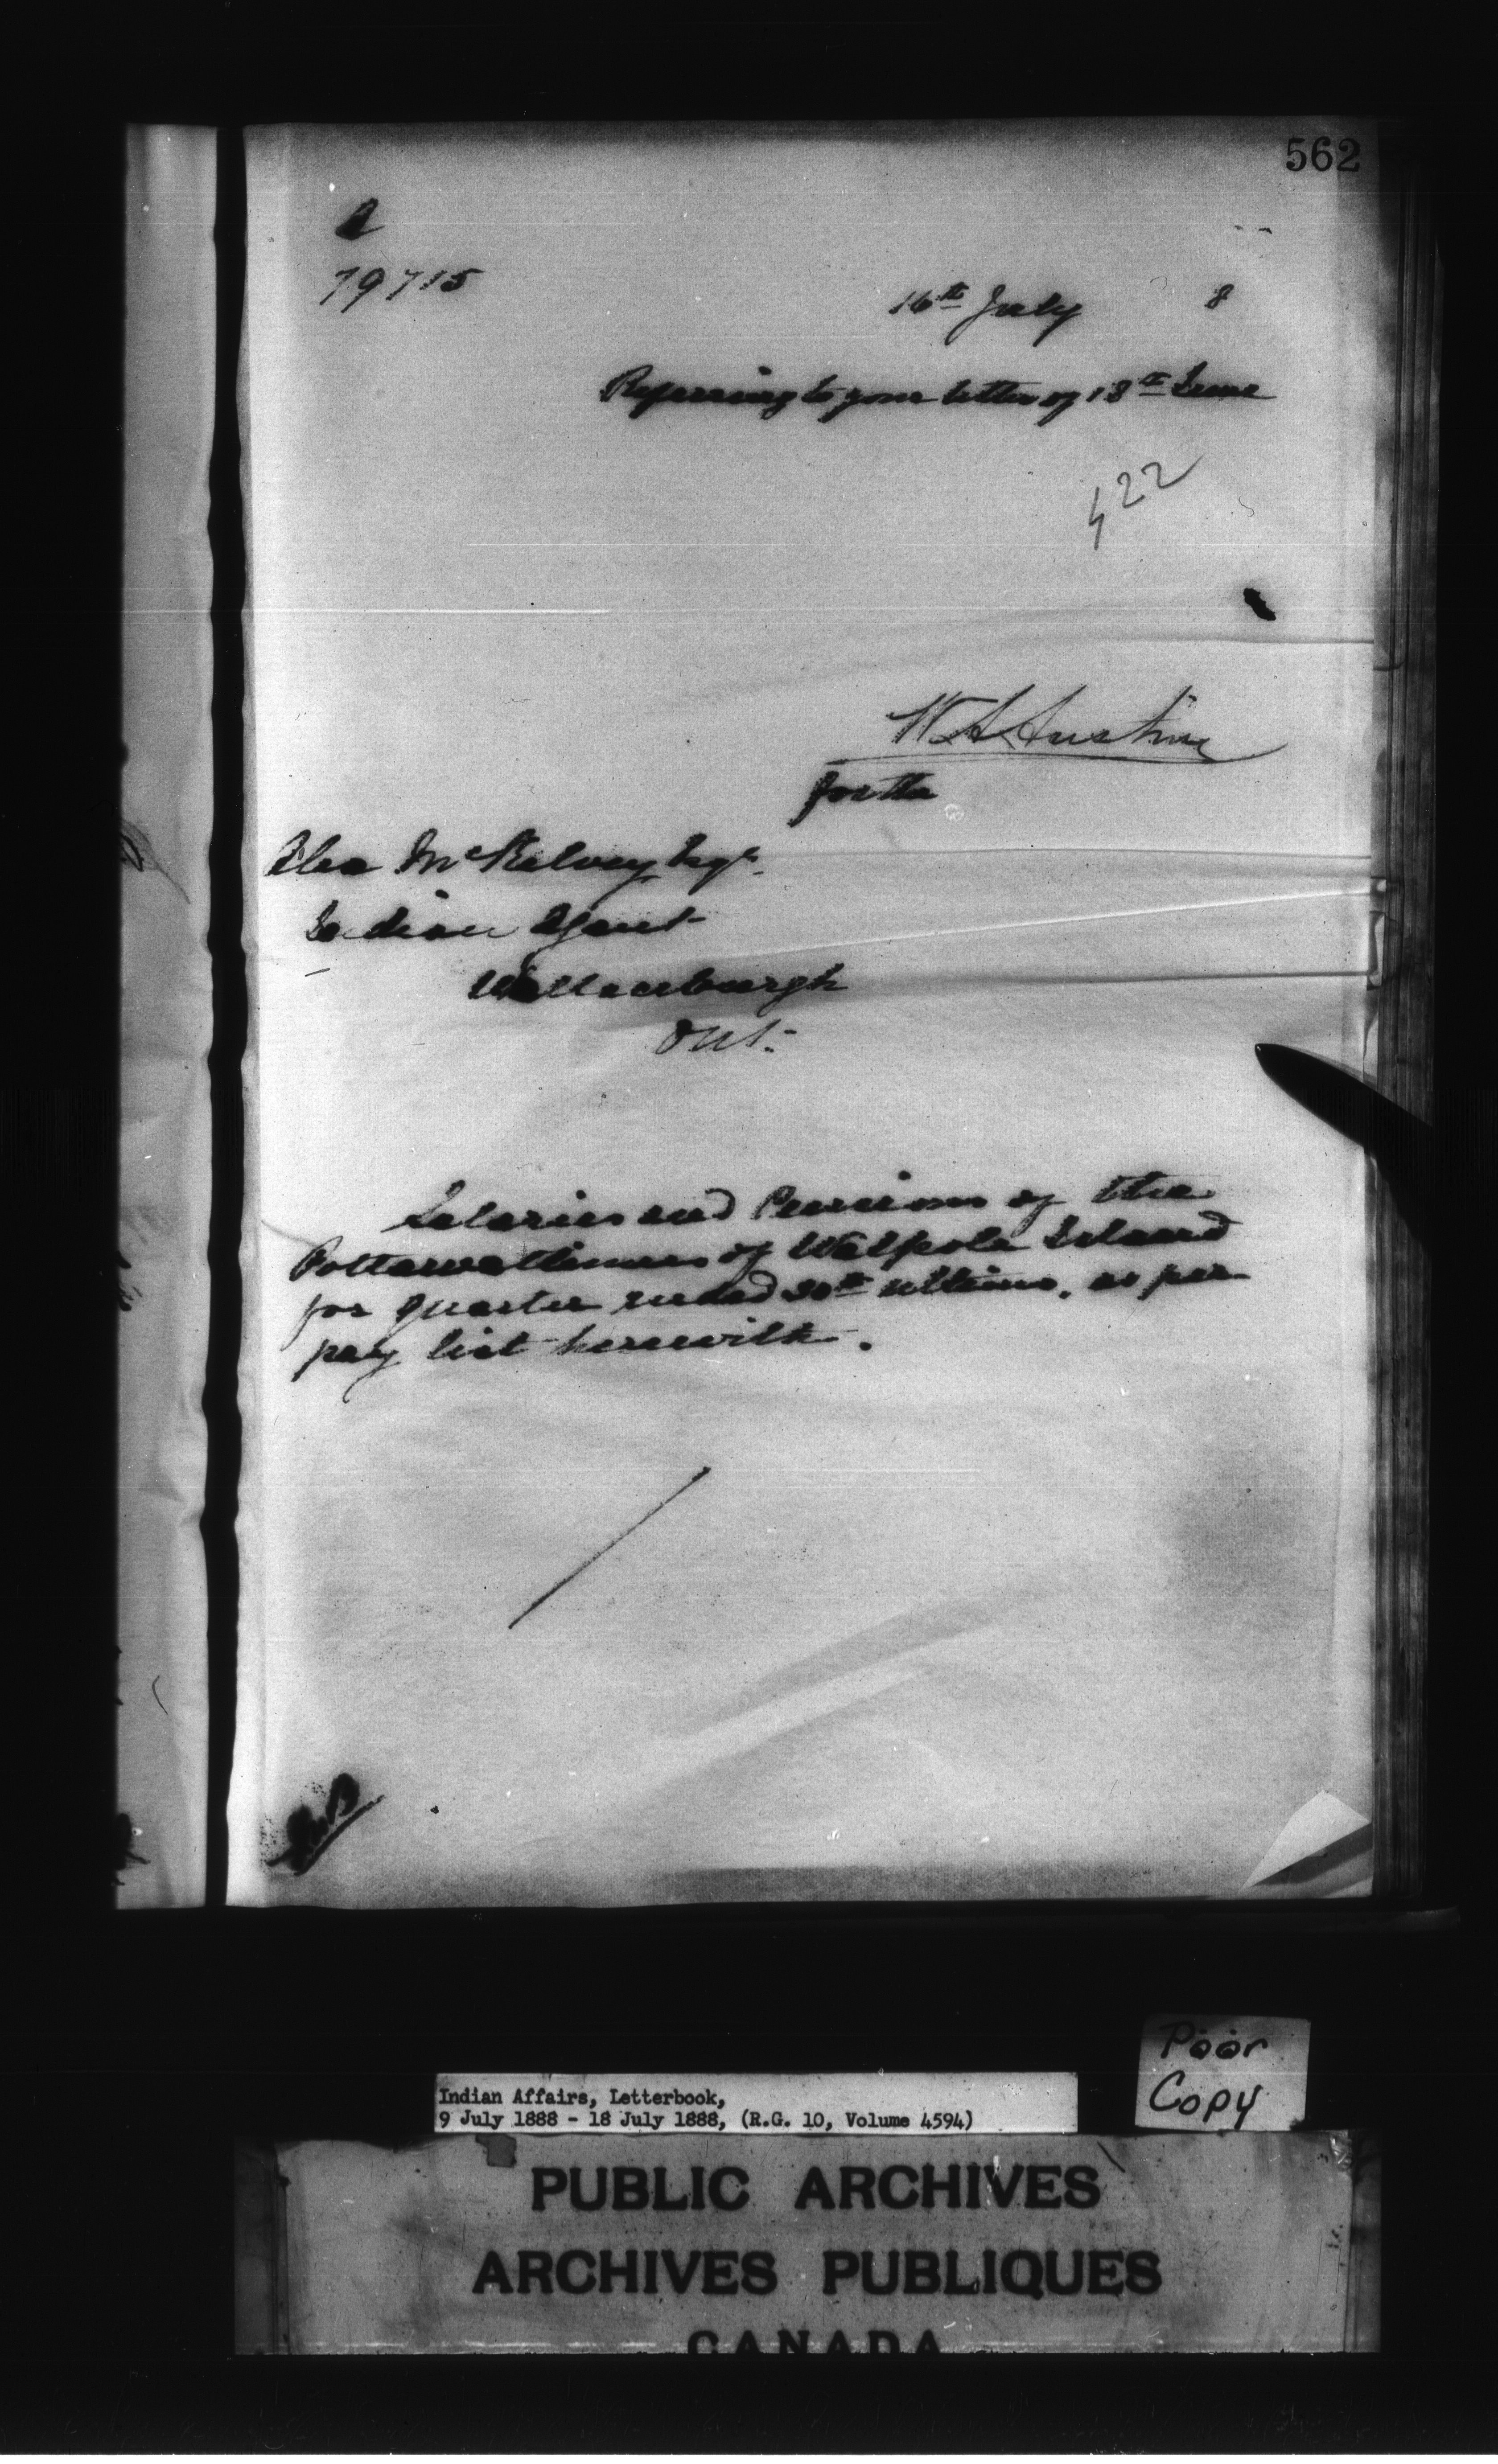 562
A
79715
16th July 8
Referring to your letter of 18th June
422
W A Austin
for the
Alex McKelvey Esqr.
Indian Agent
Wallaceburgh
Ont.
Salaries and Pensions of the
Pottawattimies of Walpole Island
for quarter ended 30th ultimo, as per
pay list herewith.
Poor
Copy
Indian Affairs, Letterbook,
9 July 1888 - 18 July 1888, (R.G. 10, Volume 4594)
PUBLIC ARCHIVES
ARCHIVES PUBLIQUES
CANADA